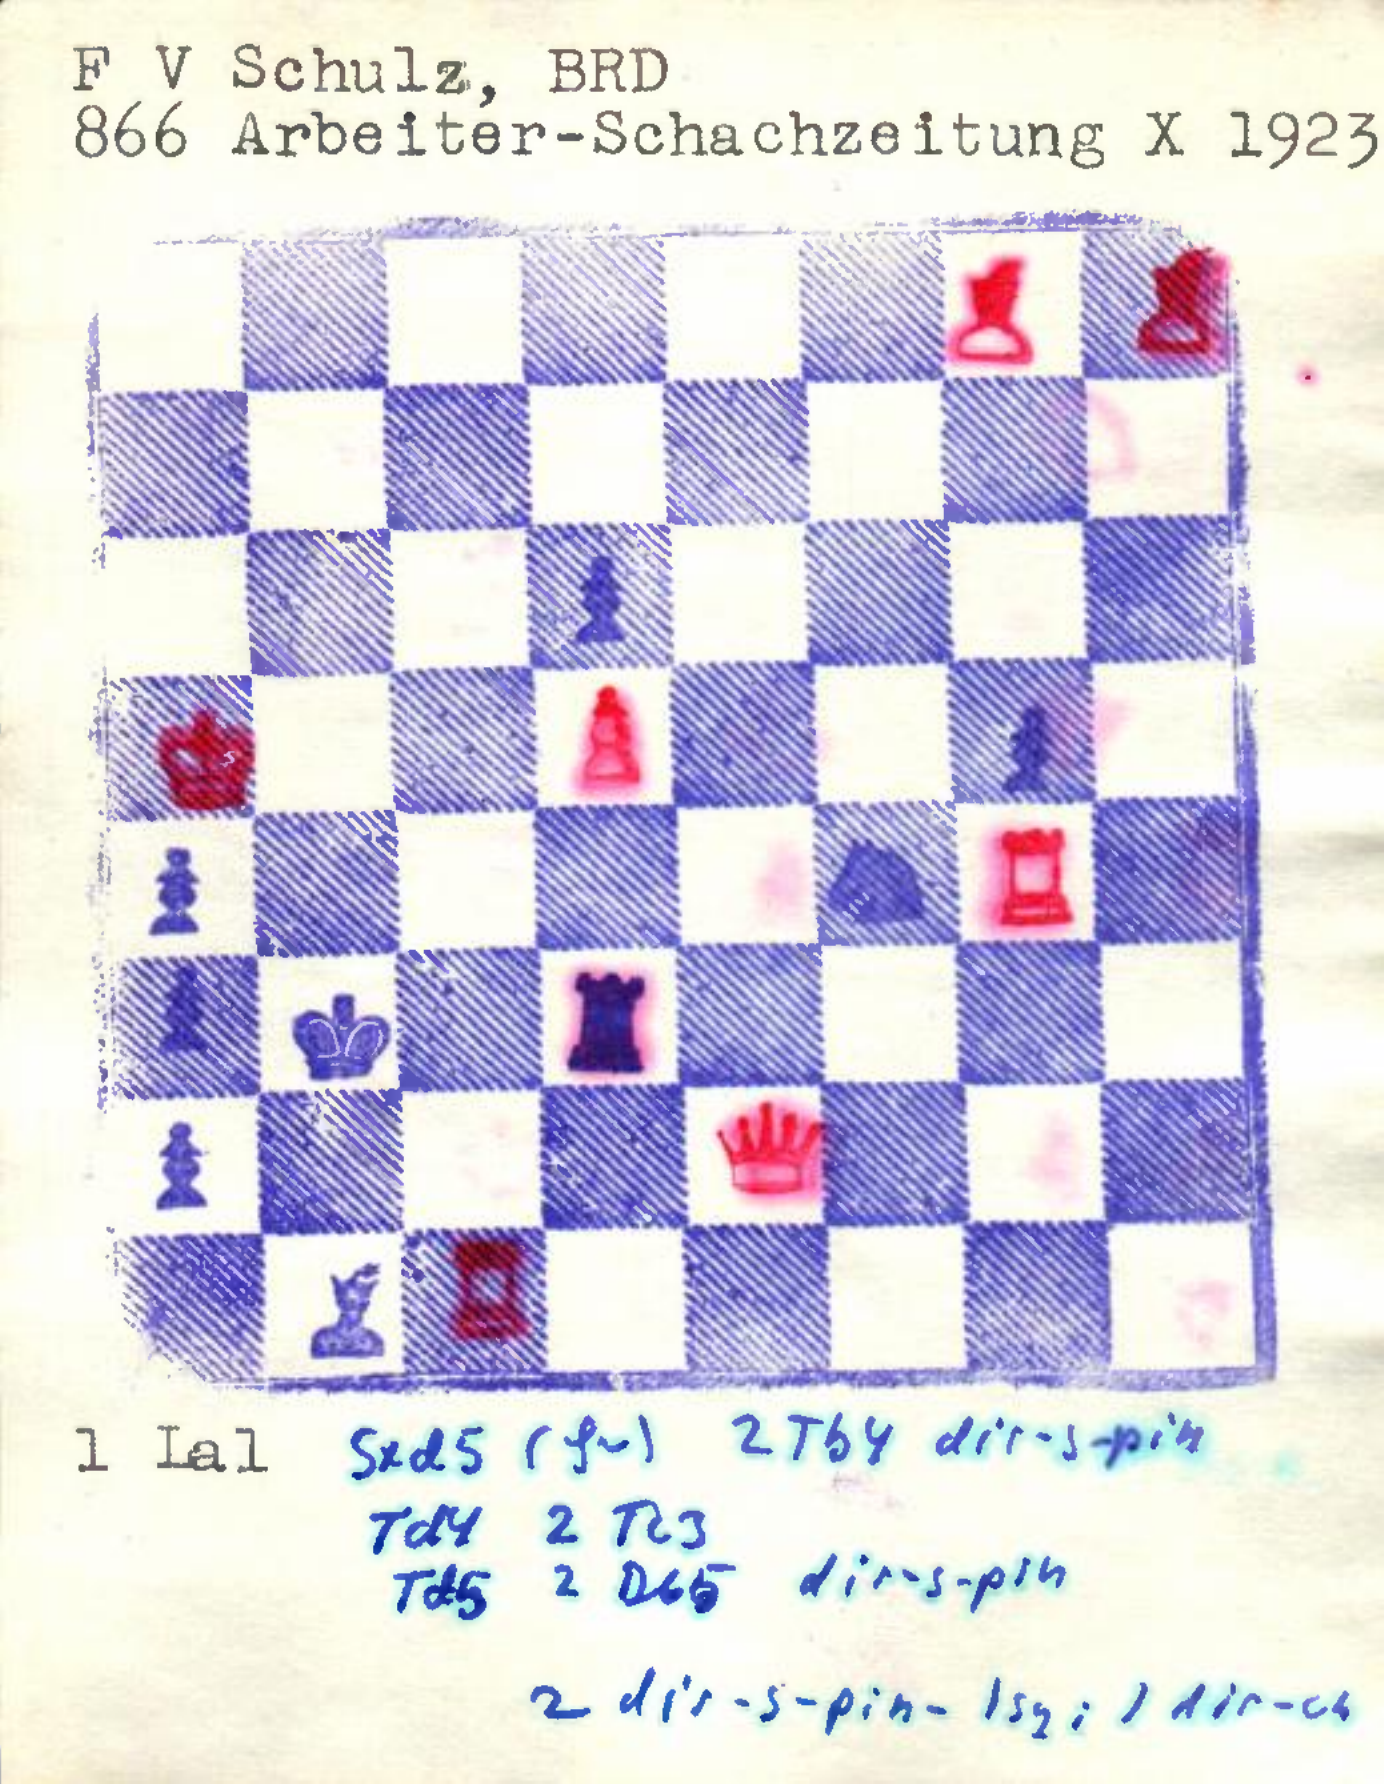 F V Schulz, BRD
866 Arbeiter-Schachzeitung X 1923
1 La1 Sxd5 (S~) 2 Tb4 dir-s-pin
Td4 2 Tc3
Td5 2 Db5 dir-s-pin
2 dir-s-pin- 1sq; 1 dir-ch